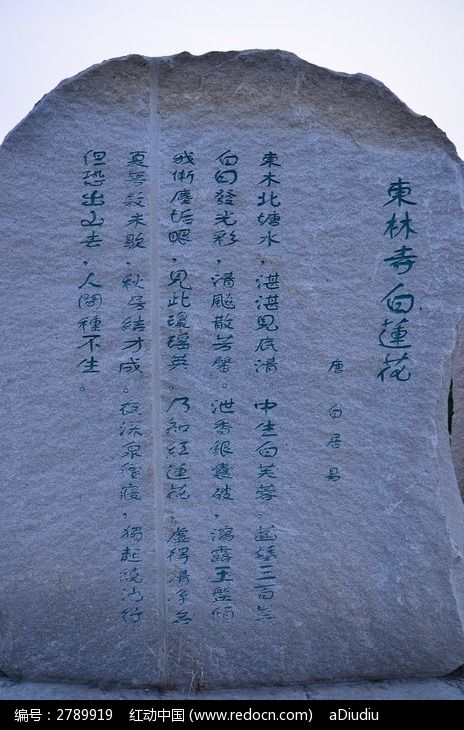 東林寺白蓮花
唐 白居易
東木北塘水，湛湛見底清 中生白芙蓉，菡萏三百莖
白日發光彩，清飈散芳馨。泄香銀囊破，瀉露玉盤傾
我慚塵垢眼，見此瓊瑤英。乃知紅蓮花，虛得清淨名
夏萼敷未歇，秋房結才成。夜深衆僧寢，獨起繞池行
但恐出山去，人間種不生。
编号：2789919 红动中国 (www.redocn.com) aDiudiu